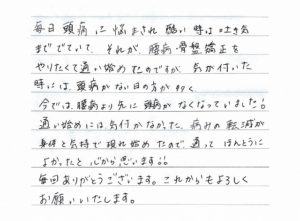 毎日頭痛に悩まされ酷い時は吐き気
まででていて、それが、腰痛・骨盤矯正を
やりたくて通い始めたのですが、気が付いた
時には、頭痛がない日の方が多く、
今では、腰痛より先に頭痛がなくなっていました!!
通い始めには、気付かなかった、痛みの転減が
身体と気持で現れ始めたので、通って ほんとうに
よかったと心から思います!!
毎回ありがとうございます。これからもよろしく
お願いいたします。